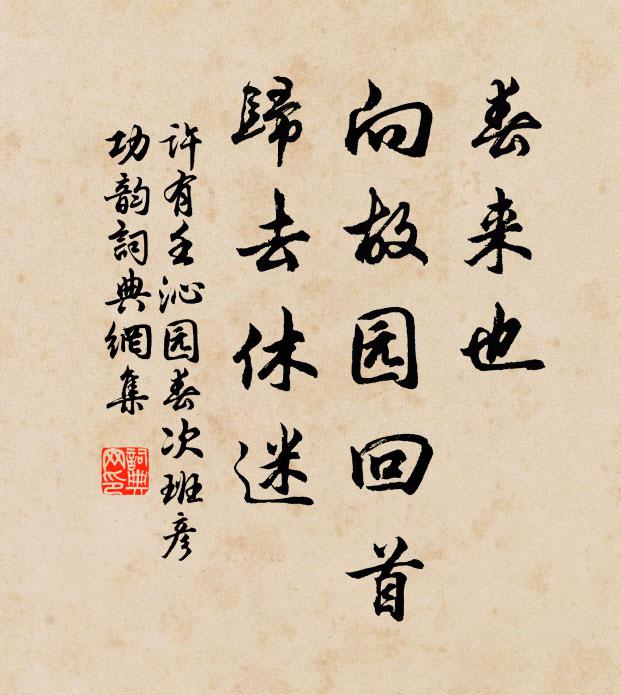 春来也
向故园回首
歸去休迷
许有壬沁园春次班彦
功韵詞典網集
詞典網印